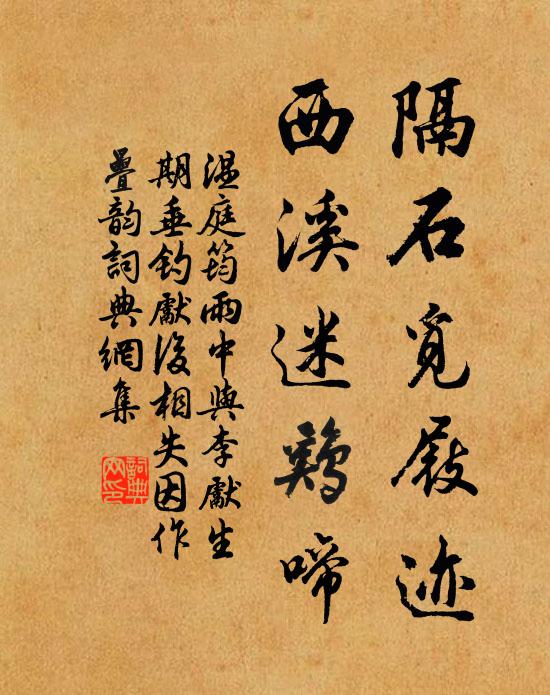 隔石覓屐迹
西溪迷鷄啼
温庭筠雨中與李獻生
期垂釣獻後相失因作
疊韵詞典網集
詞典
网印